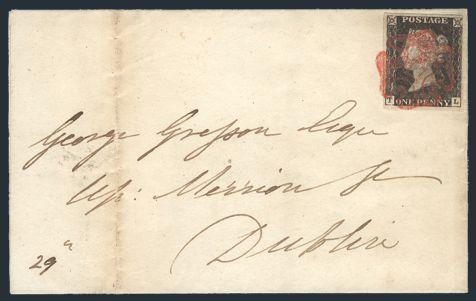 POSTAGE
ONE PENNY
L
George Gresson Esqre
Up: Merrion St
Dublin
29